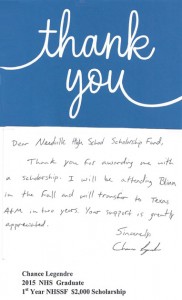 thank
you
Dear Needville High School Scholarship Fund,
Thank you for awarding me with
a scholarship. I will be attending Blinn
in the Fall and will transfer to Texas
A&M in two years. Your support is greatly
appreciated.
Sincerely,
Chance Legendre
Chance Legendre
2015 NHS Graduate
1st Year NHSSF $2,000 Scholarship